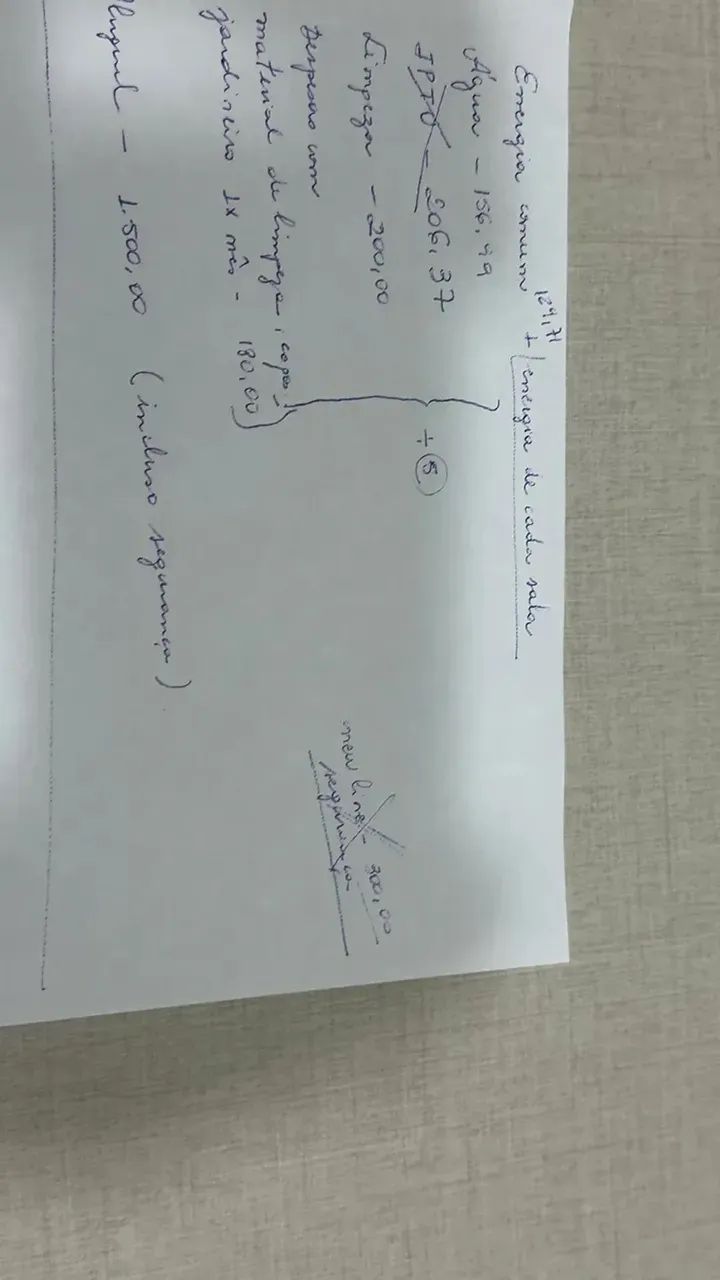 Energia comum 129,71 + energia de cada sala
Água - 156,49
IPTU - 206,37
Limpeza - 200,00
÷ 5
Despesas com
material de limpeza, copa,
jardineiro 1x mês - 180,00
new line - 300,00
segurança
Aluguel - 1.500,00 (incluso segurança)